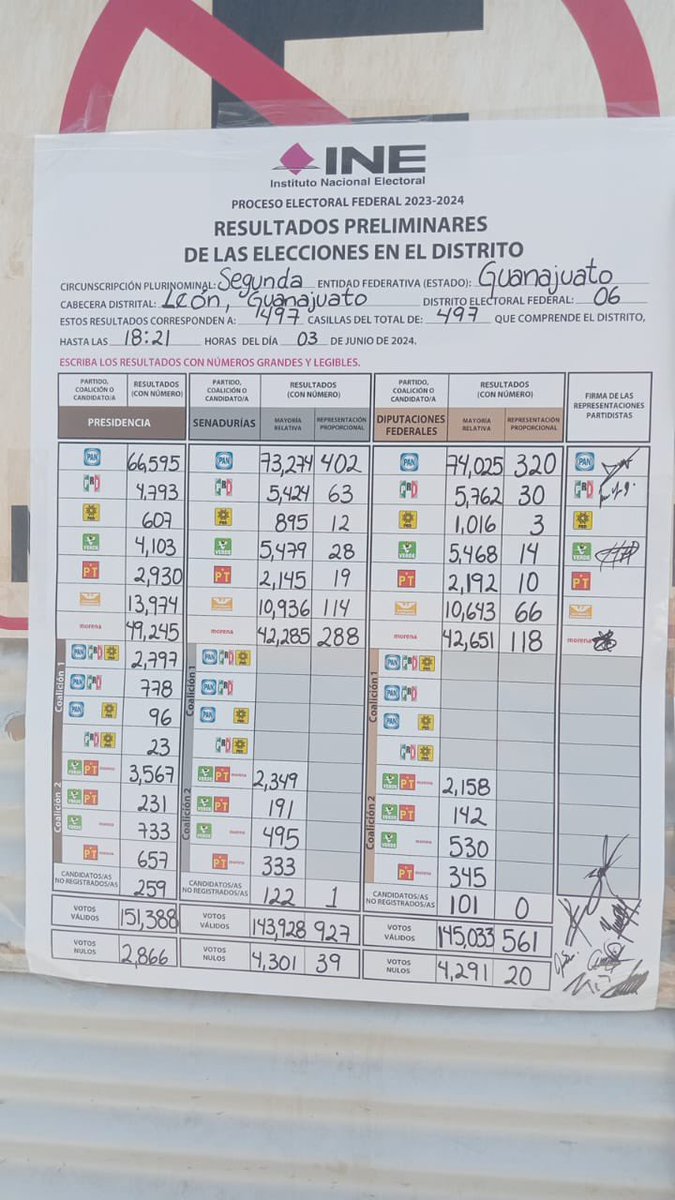 INE
Instituto Nacional Electoral
PROCESO ELECTORAL FEDERAL 2023-2024
RESULTADOS PRELIMINARES
DE LAS ELECCIONES EN EL DISTRITO
CIRCUNSCRIPCIÓN PLURINOMINAL: Segunda ENTIDAD FEDERATIVA (ESTADO): Guanajuato
CABECERA DISTRITAL: León, Guanajuato DISTRITO ELECTORAL FEDERAL: 06
ESTOS RESULTADOS CORRESPONDEN A: 497 CASILLAS DEL TOTAL DE: 497 QUE COMPRENDE EL DISTRITO,
HASTA LAS 18:21 HORAS DEL DÍA 03 DE JUNIO DE 2024.
ESCRIBA LOS RESULTADOS CON NÚMEROS GRANDES Y LEGIBLES.
PARTIDO, COALICIÓN O CANDIDATO/A RESULTADOS (CON NÚMERO) PARTIDO, COALICIÓN O CANDIDATO/A RESULTADOS (CON NÚMERO) PARTIDO, COALICIÓN O CANDIDATO/A RESULTADOS (CON NÚMERO) FIRMA DE LAS REPRESENTACIONES PARTIDISTAS
PRESIDENCIA SENADURÍAS MAYORÍA RELATIVA REPRESENTACIÓN PROPORCIONAL DIPUTACIONES FEDERALES MAYORÍA RELATIVA REPRESENTACIÓN PROPORCIONAL
PAN 66,595 PAN 73,274 402 PAN 74,025 320 PAN
PRI 4,793 PRI 5,424 63 PRI 5,762 30 PRI
PRD 607 PRD 895 12 PRD 1,016 3 PRD
VERDE 4,103 VERDE 5,479 28 VERDE 5,468 14 VERDE
PT 2,930 PT 2,145 19 PT 2,192 10 PT
13,974 10,936 114 10,643 66
morena 49,245 morena 42,285 288 morena 42,651 118 morena
Coalición 1 PAN PRI PRD 2,797 Coalición 1 PAN PRI PRD Coalición 1 PAN PRI PRD
PAN PRI 778 PAN PRI PAN PRI
PAN PRD 96 PAN PRD PAN PRD
PRI PRD 23 PRI PRD PRI PRD
Coalición 2 VERDE PT morena 3,567 Coalición 2 VERDE PT morena 2,349 Coalición 2 VERDE PT morena 2,158
VERDE PT 231 VERDE PT 191 VERDE PT 142
VERDE morena 733 VERDE morena 495 VERDE morena 530
PT morena 657 PT morena 333 PT morena 345
CANDIDATOS/AS NO REGISTRADOS/AS 259 CANDIDATOS/AS NO REGISTRADOS/AS 122 1 CANDIDATOS/AS NO REGISTRADOS/AS 101 0
VOTOS VÁLIDOS 151,388 VOTOS VÁLIDOS 143,928 927 VOTOS VÁLIDOS 145,033 561
VOTOS NULOS 2,866 VOTOS NULOS 4,301 39 VOTOS NULOS 4,291 20